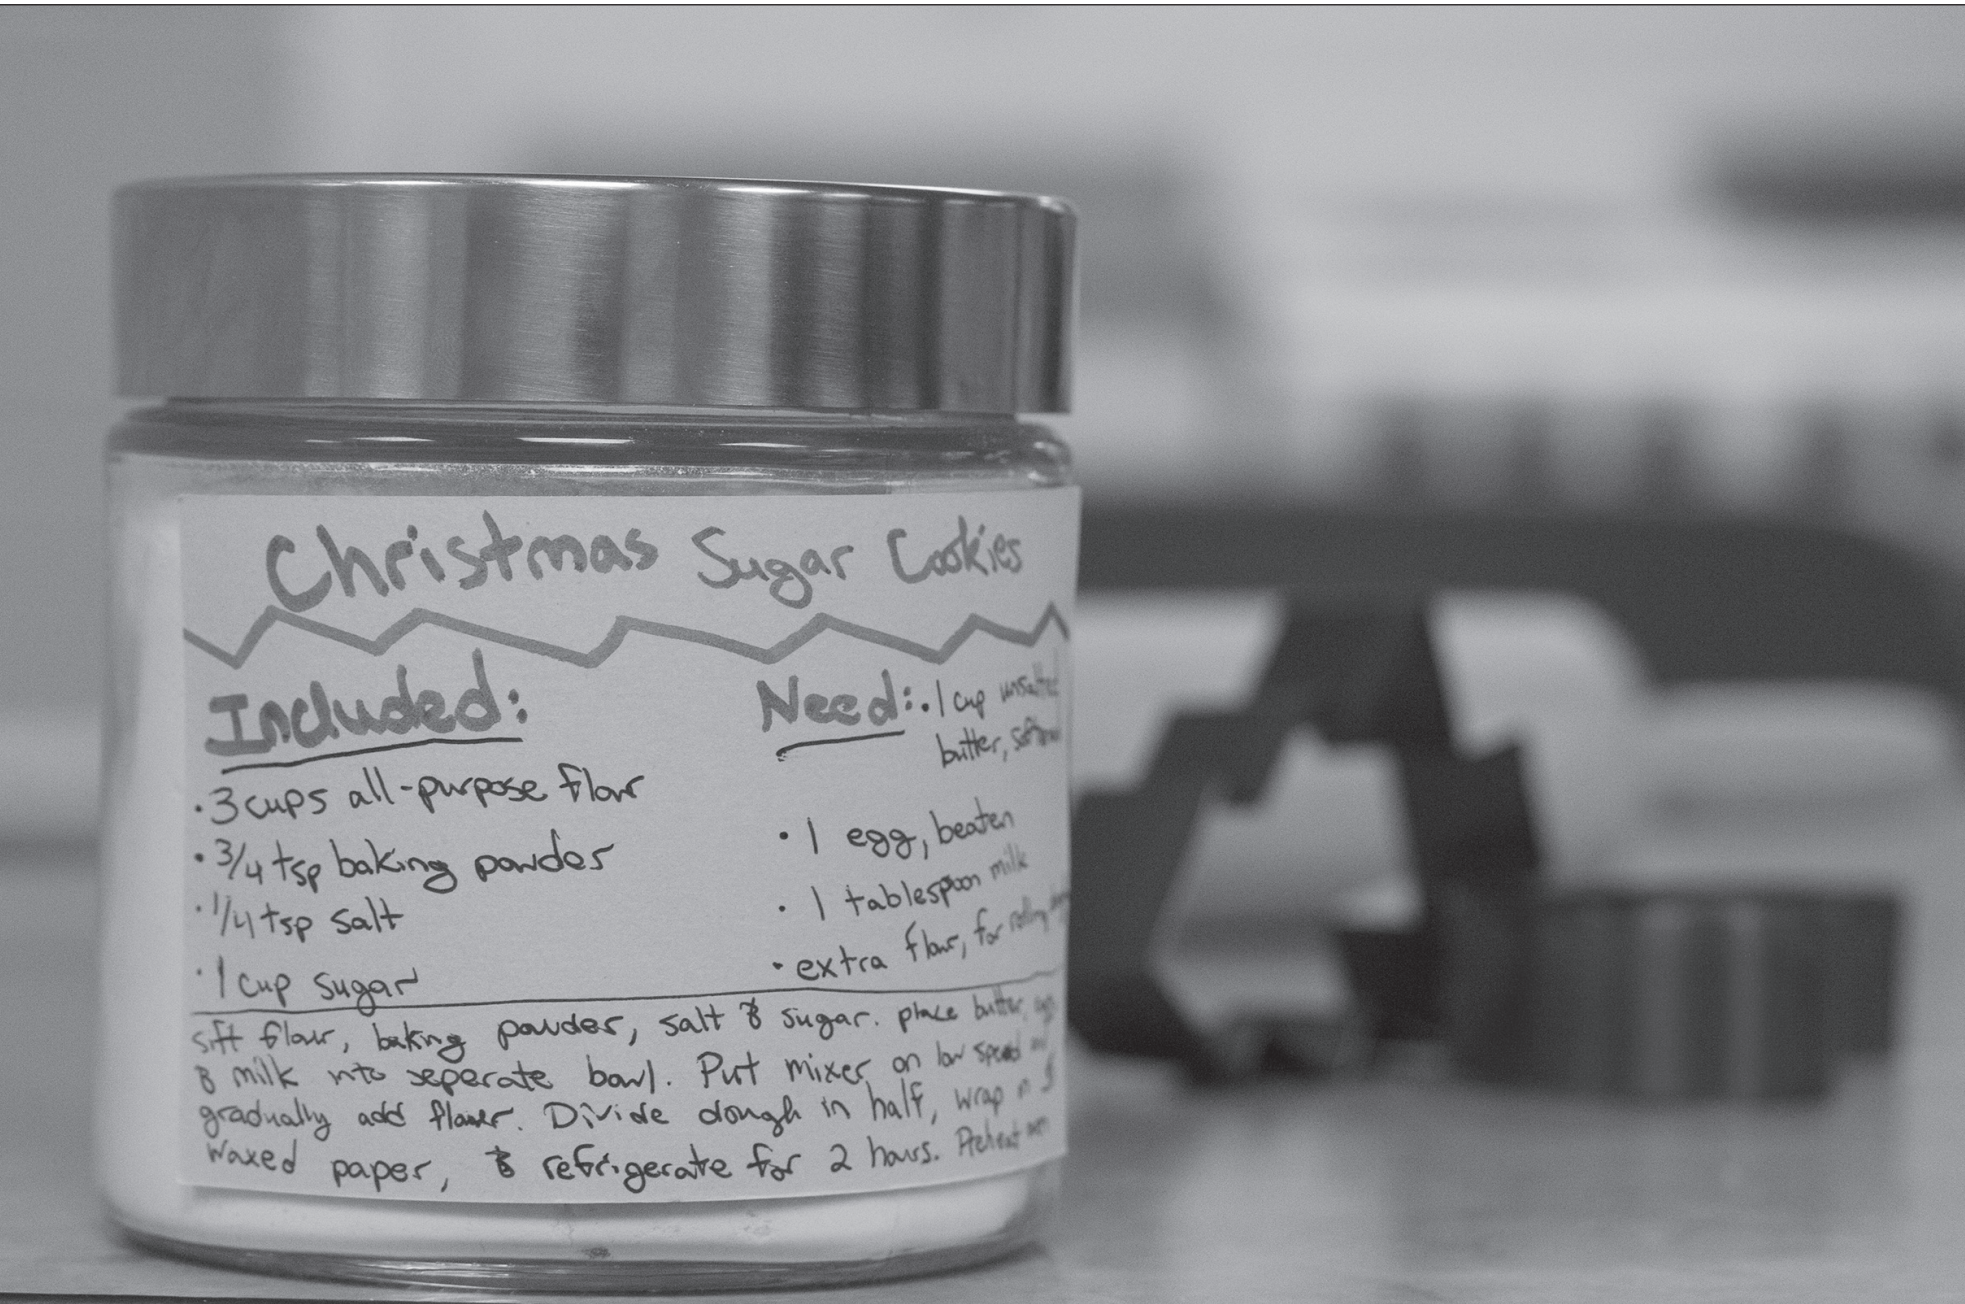 Christmas Sugar Cookies
Included:
• 3 cups all-purpose flour
• 3/4 tsp baking powder
• 1/4 tsp salt
• 1 cup sugar
Need: • 1 cup unsalted
butter, softened
• 1 egg, beaten
• 1 tablespoon milk
• extra flour, for rolling
sift flour, baking powder, salt & sugar. place butter,
& milk into seperate bowl. Put mixer on low speed
gradually add flower. Divide dough in half, wrap in
waxed paper, & refrigerate for 2 hours. Preheat oven